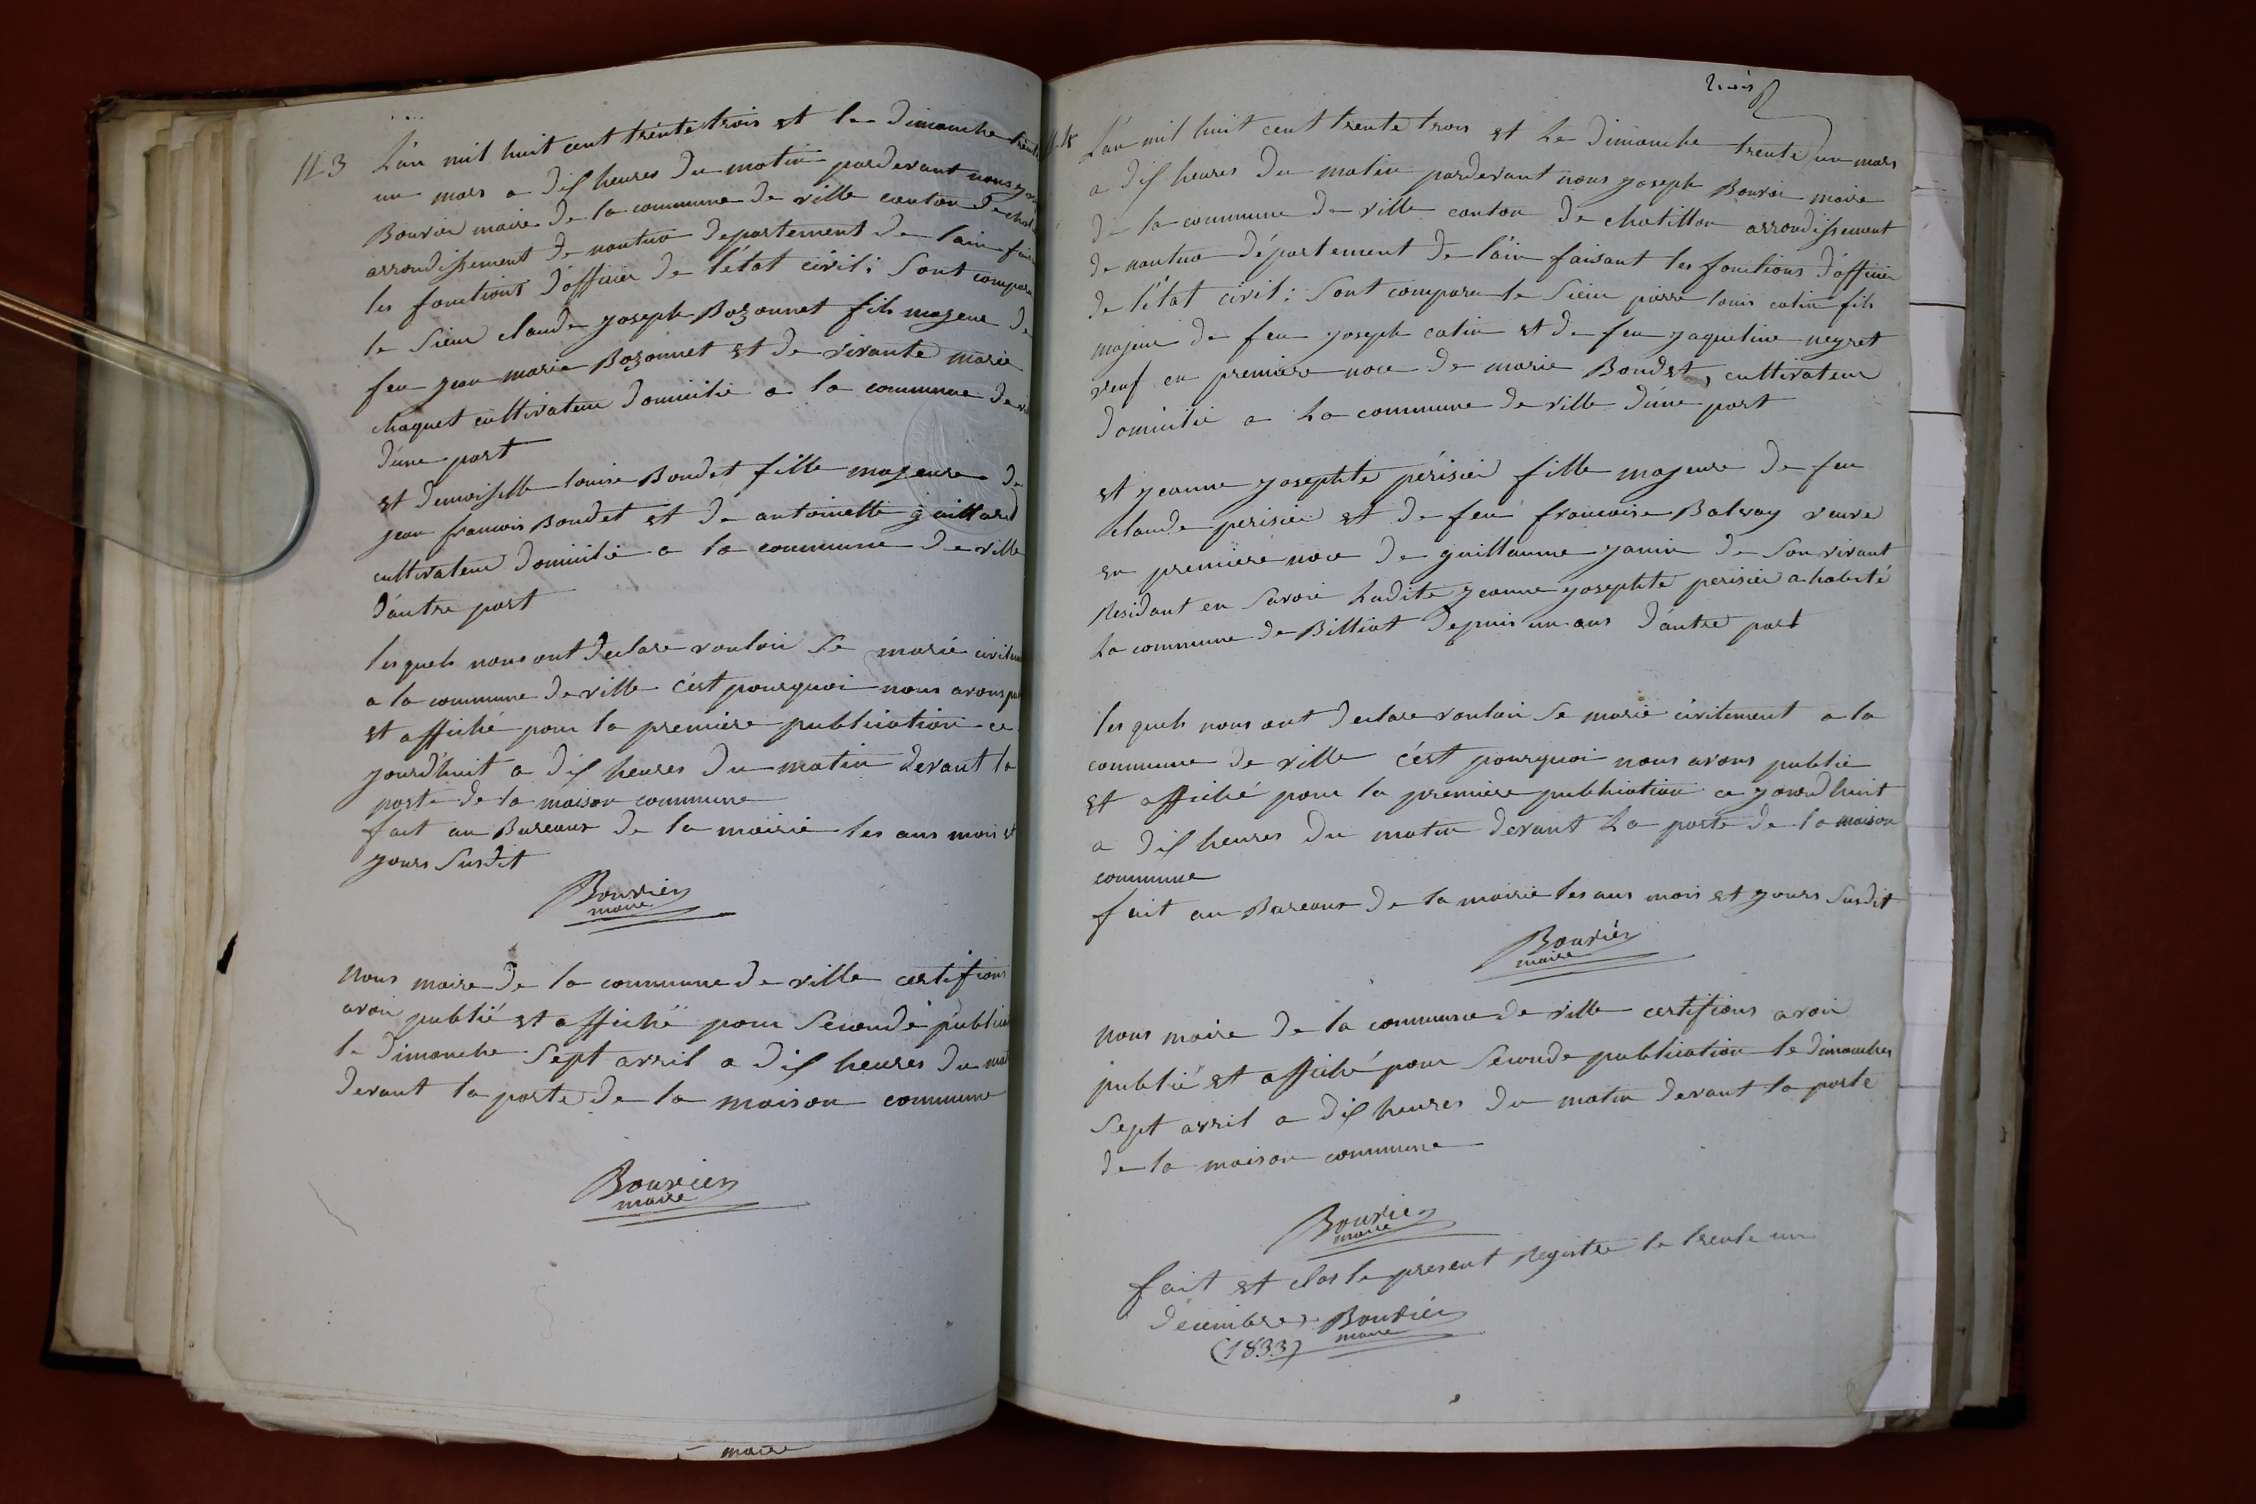 N.3 L'an mil huit cent trente trois et le dimanche trente
un mars a dix heures du matin pardevant nous
Bouvier maire de la commune de ville canton de
arrondissement de nantua departement de l'ain
les fonctions d'officier de l'état civil : Sont
le Sieur claude joseph Bozonnet fils majeur de
feu jean marie Bozonnet et de vivante marie
chaquet cultivateur domicilié a la commune de
d'une part
et demoiselle louise Boudet fille majeure de
jean francois Boudet et de antoinette gaillard
cultivateur domicilié a la commune de ville
d'autre part
les quels nous ont declare vouloir se marié
a la commune de ville c'est pourquoi nous avons
et affiché pour la premiere publication ce
jourd'huit a dix heures du matin devant la
porte de la maison commune
fait au Bureaux de la mairie les ans mois et
jours Susdit
Bouvier
maire
Nous maire de la commune de ville certifions
avoir publié et affiché pour Seconde
le dimanche Sept avril a dix heures du
devant la porte de la maison commune
Bouvier
maire
maire
trois
L'an mil huit cent trente trois et le dimanche trente un mars
a dix heures du matin pardevant nous joseph Bouvier maire
de la commune de ville canton de chatillon arrondissement
de nantua département de l'ain faisant les fonctions d'officier
de l'état civil : Sont comparu le Sieur pierre louis catin fils
majeur de feu joseph catin et de feu jaqueline neyret
veuf en premiere noce de marie Boudet, cultivateur
domicilié a la commune de ville d'une part
et jeanne josephte périsier fille majeure de feu
claude perisier et de feu francoise Balvay veuve
en premiere noce de guillaume janin de Son vivant
Residant en Savoie Ladite jeanne josephte perisier a habité
La commune de Billiat depuis un ans d'autre part
les quels nous ont declare vouloir se marié civilement a la
commune de ville c'est pourquoi nous avons publié
et affiché pour la premiere publication ce jourd'huit
a dix heures du matin devant La porte de la maison
commune
fait au Bureaux de la mairie les ans mois et jours Susdit
Bouvier
maire
Nous maire de la commune de ville certifions avoir
publié et affiché pour Seconde publication le dimanche
Sept avril a dix heures du matin devant la porte
de la maison commune
Bouvier
maire
fait et clos le present Registre le trente un
decembre Bouvier
(1833) maire